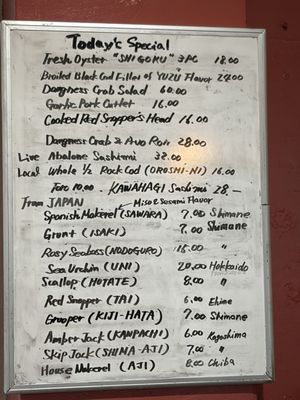 Today's Special
Fresh Oyster "SHIGOKU" 3PC 18.00
Broiled Black Cod Fillet of YUZU Flavor 24.00
Dangness Crab Salad 60.00
Garlic Pork Cutlet 16.00
Cooked Red Snapper's Head 16.00
Dangness Crab & Avo Roll 28.00
Live Abalone Sashimi 38.00
Local Whole 1/2 Rock Cod (OROSHI-NI) 16.00
Toro 10.00 - KAWAHAGI Sashimi 28.-
From JAPAN Miso & Sesami Flavor
Spanish Makerel (SAWARA) 7.00 Shimane
Grunt (ISAKI) 7.00 Shimane
Rosy Seabass (NODOGURO) 15.00 "
Sea Urchin (UNI) 20.00 Hokkaido
Scallop (HOTATE) 8.00 "
Red Snapper (TAI) 6.00 Ehime
Grouper (KIJI-HATA) 7.00 Shimane
Amber Jack (KANPACHI) 6.00 Kagoshima
Skip Jack (SHIMA-AJI) 7.00 "
House Makerel (AJI) 8.00 Chiba